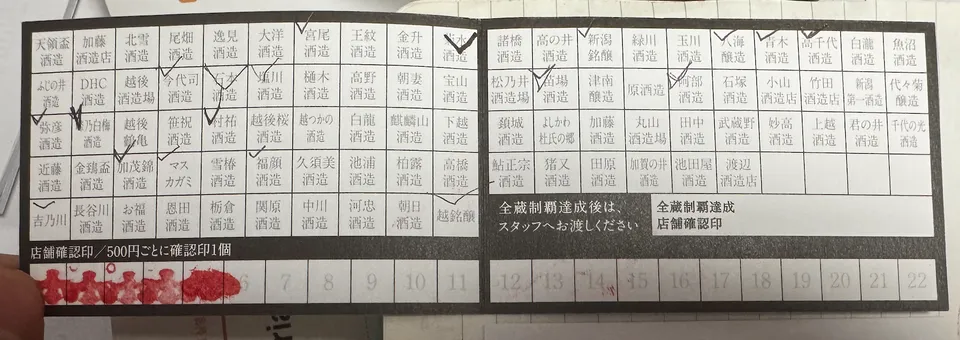 天領盃 加藤 北雪 尾畑 逸見 大洋 宮尾 王紋 金升
酒造 酒造店 酒造 酒造 酒造 酒造 酒造 酒造 酒造 酒造
ふじの井 DHC 越後 今代司 石本 塩川 樋木 高野 朝妻 宝山
酒造 酒造 酒造場 酒造 酒造 酒造 酒造 酒造 酒造 酒造
弥彦 乃白梅 越後 笹祝 村祐 越後桜 越つかの 白龍 麒麟山 下越
酒造 酒造 鶴亀 酒造 酒造 酒造 酒造 酒造 酒造 酒造
近藤 金鵄盃 加茂錦 マス 雪椿 福顔 久須美 池浦 柏露 高橋
酒造 酒造 酒造 カガミ 酒造 酒造 酒造 酒造 酒造 酒造
吉乃川 長谷川 お福 恩田 栃倉 関原 中川 河忠 朝日 越銘醸
酒造 酒造 酒造 酒造 酒造 酒造 酒造 酒造
店舗確認印/500円ごとに確認印1個
6 7 8 9 10 11
諸橋 高の井 新潟 緑川 玉川 八海 青木 高千代 白瀧 魚沼
酒造 酒造 銘醸 酒造 酒造 醸造 酒造 酒造 酒造 酒造
松乃井 苗場 津南 原酒造 阿部 石塚 小山 竹田 新潟 代々菊
酒造場 酒造 醸造 酒造 酒造 酒造店 酒造店 第一酒造 醸造
頚城 よしかわ 加藤 丸山 田中 武蔵野 妙高 上越 君の井 千代の光
酒造 杜氏の郷 酒造 酒造場 酒造 酒造 酒造 酒造 酒造 酒造
鮎正宗 猪又 田原 加賀の井 池田屋 渡辺
酒造 酒造 酒造 酒造 酒造 酒造店
全蔵制覇達成後は、
スタッフへお渡しください
全蔵制覇達成
店舗確認印
12 13 14 15 16 17 18 19 20 21 22